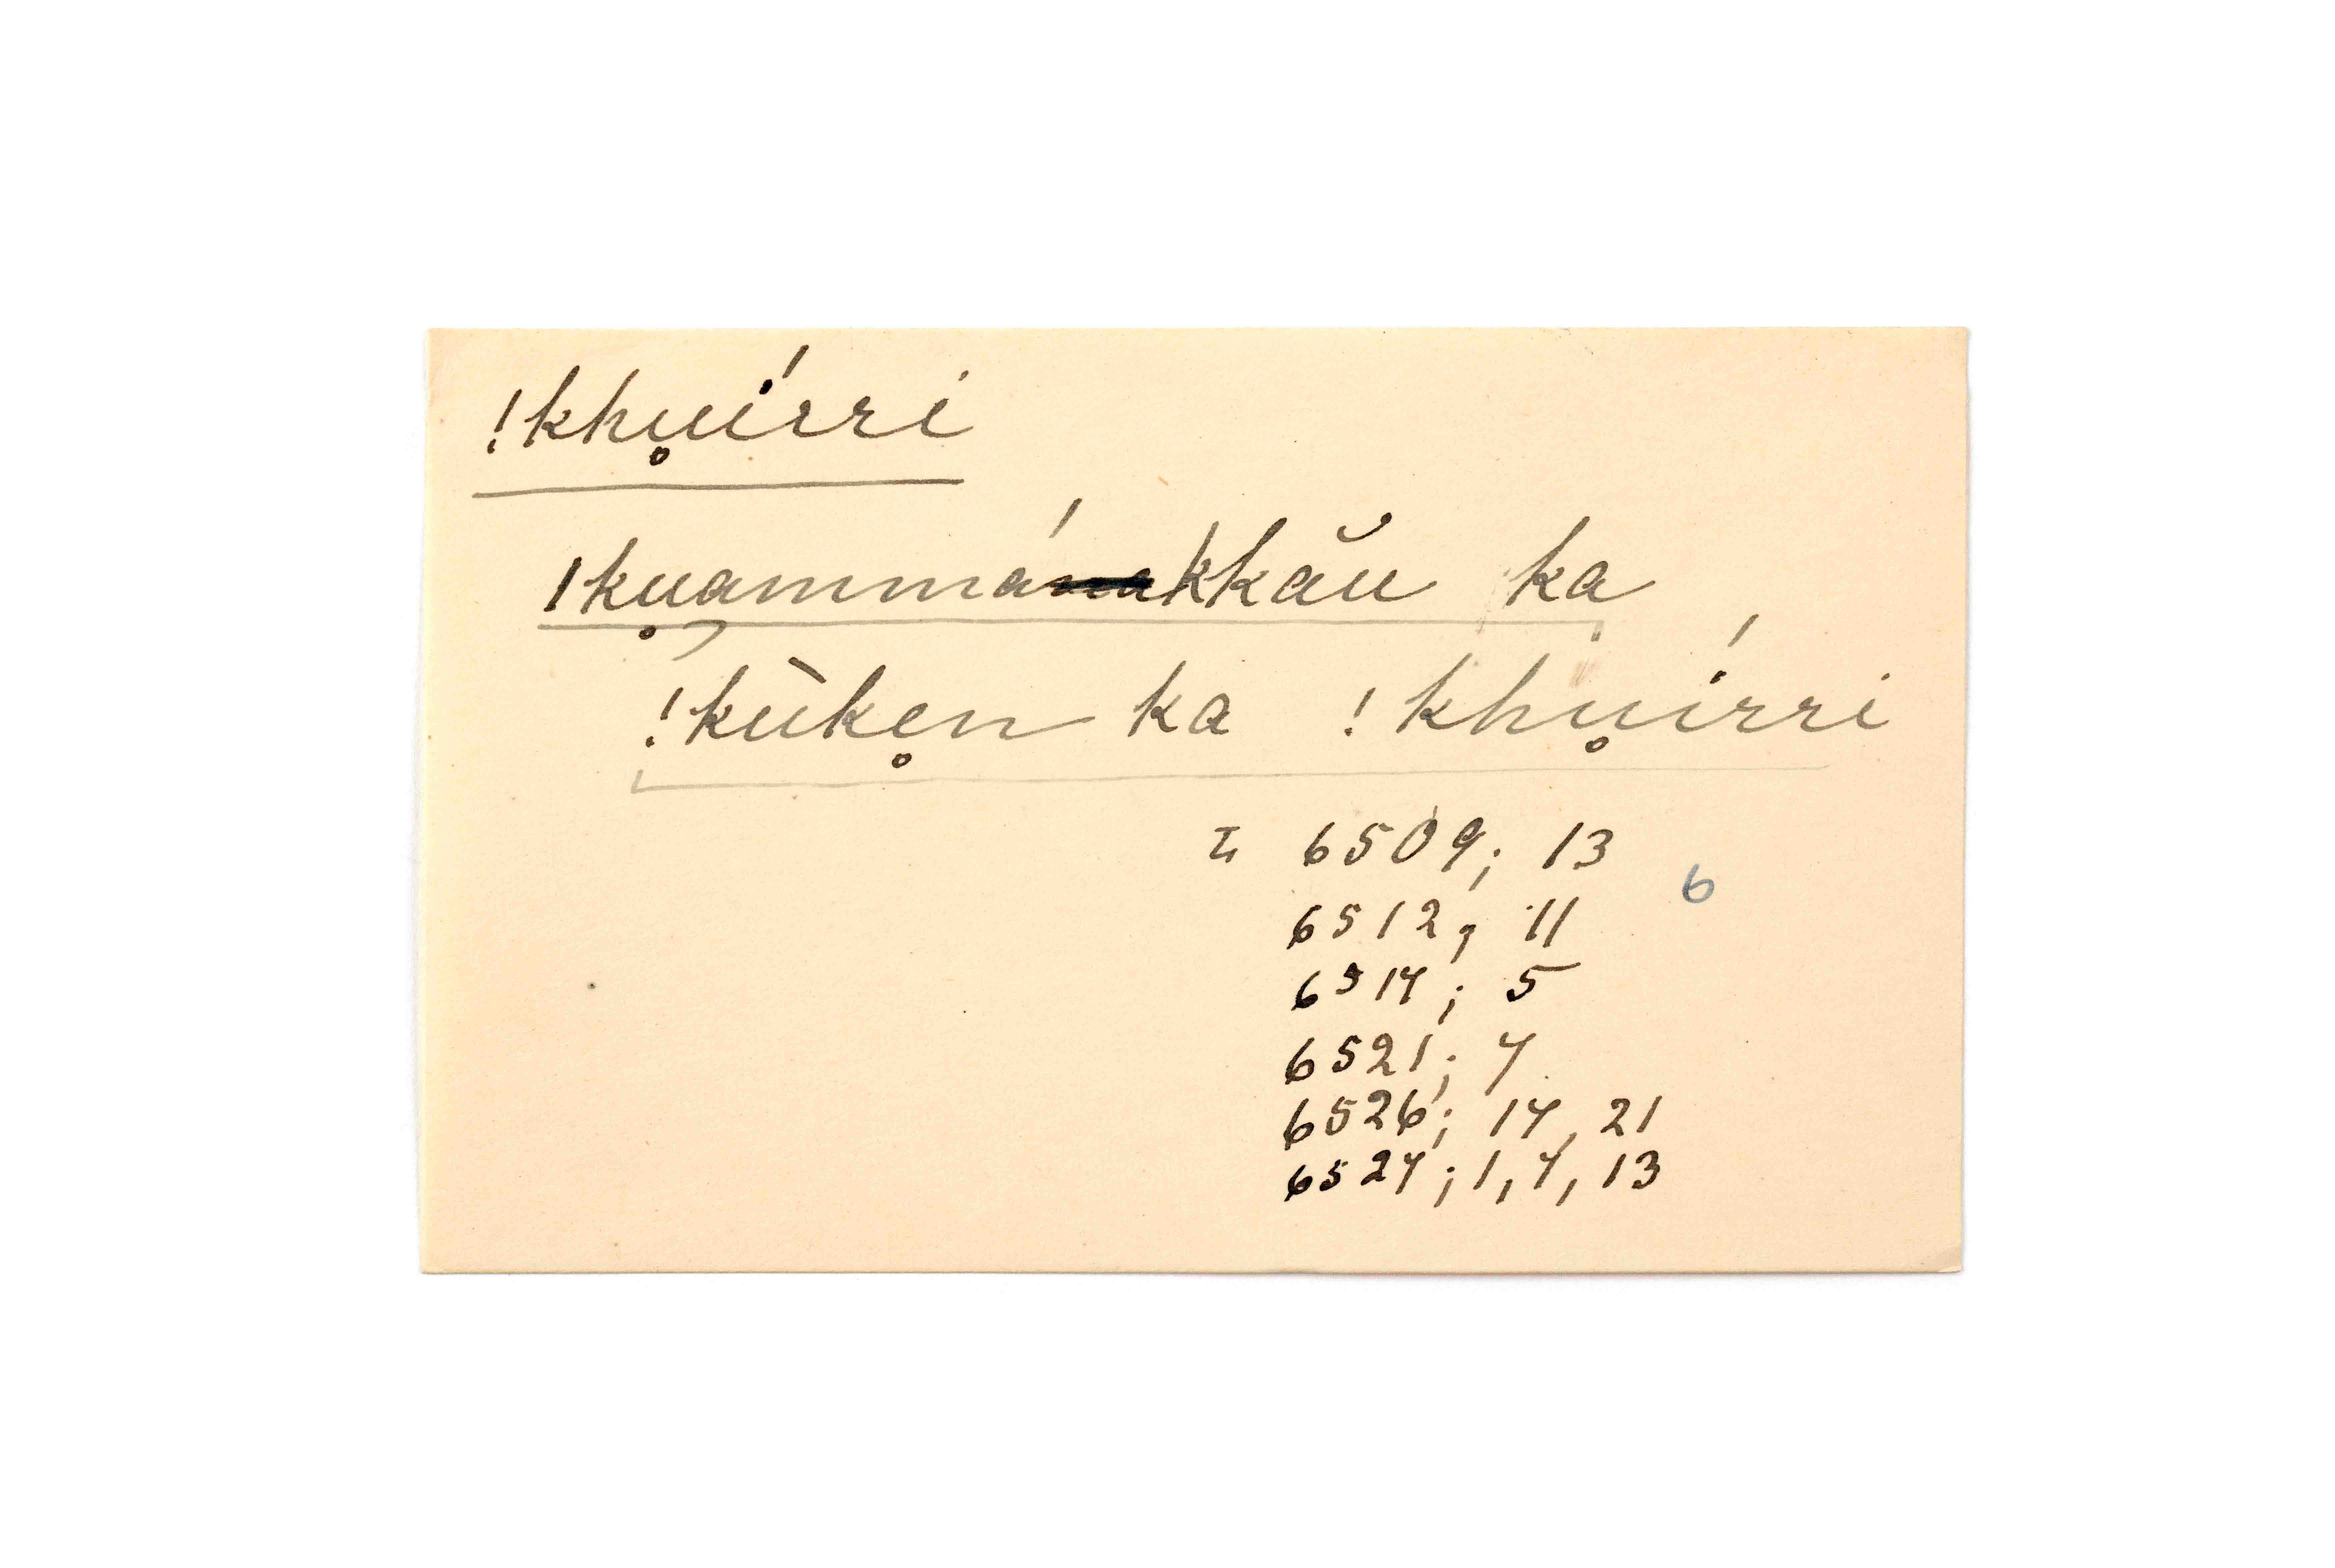 !khu̥írri
|ku̥ammákkăŭ ka
!kūke̥n ka !khu̥írri
6509; 13
6
6512; 11
6517; 5
6521; 7
6526; 17, 21
6527; 1, 7, 13